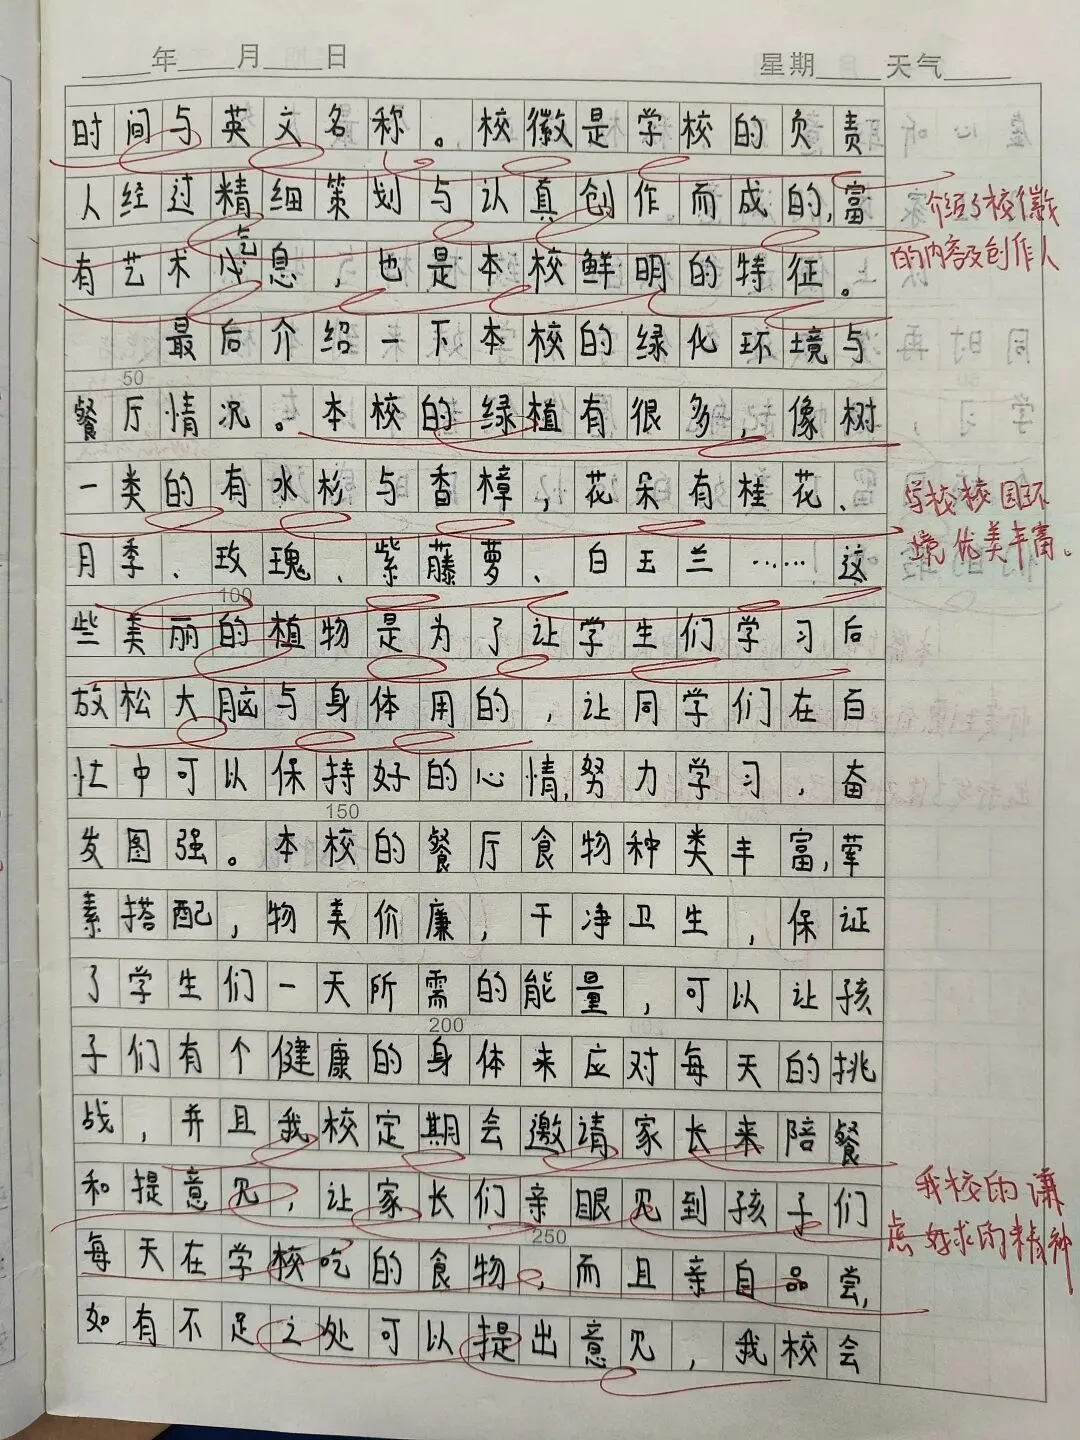 年 月 日 星期 天气
时间与英文名称。校徽是学校的负责
人经过精细策划与认真创作而成的,富
气
有艺术息,也是本校鲜明的特征。
介绍了校徽
的内容及创作人
最后介绍一下本校的绿化环境与
50
餐厅情况。本校的绿植有很多,像树
一类的有水杉与香樟,花朵有桂花、
学校校园环
境优美丰富。
月季、玫瑰、紫藤萝、白玉兰……这
100
些美丽的植物是为了让学生们学习后
放松大脑与身体用的,让同学们在百
忙中可以保持好的心情,努力学习,奋
150
发图强。本校的餐厅食物种类丰富,荤
素搭配,物美价廉,干净卫生,保证
了学生们一天所需的能量,可以让孩
200
子们有个健康的身体来应对每天的挑
战,并且我校定期会邀请家长来陪餐
和提意见,让家长们亲眼见到孩子们
我校的谦
虑好求的精神
250
每天在学校吃的食物,而且亲自品尝,
如有不足之处可以提出意见,我校会